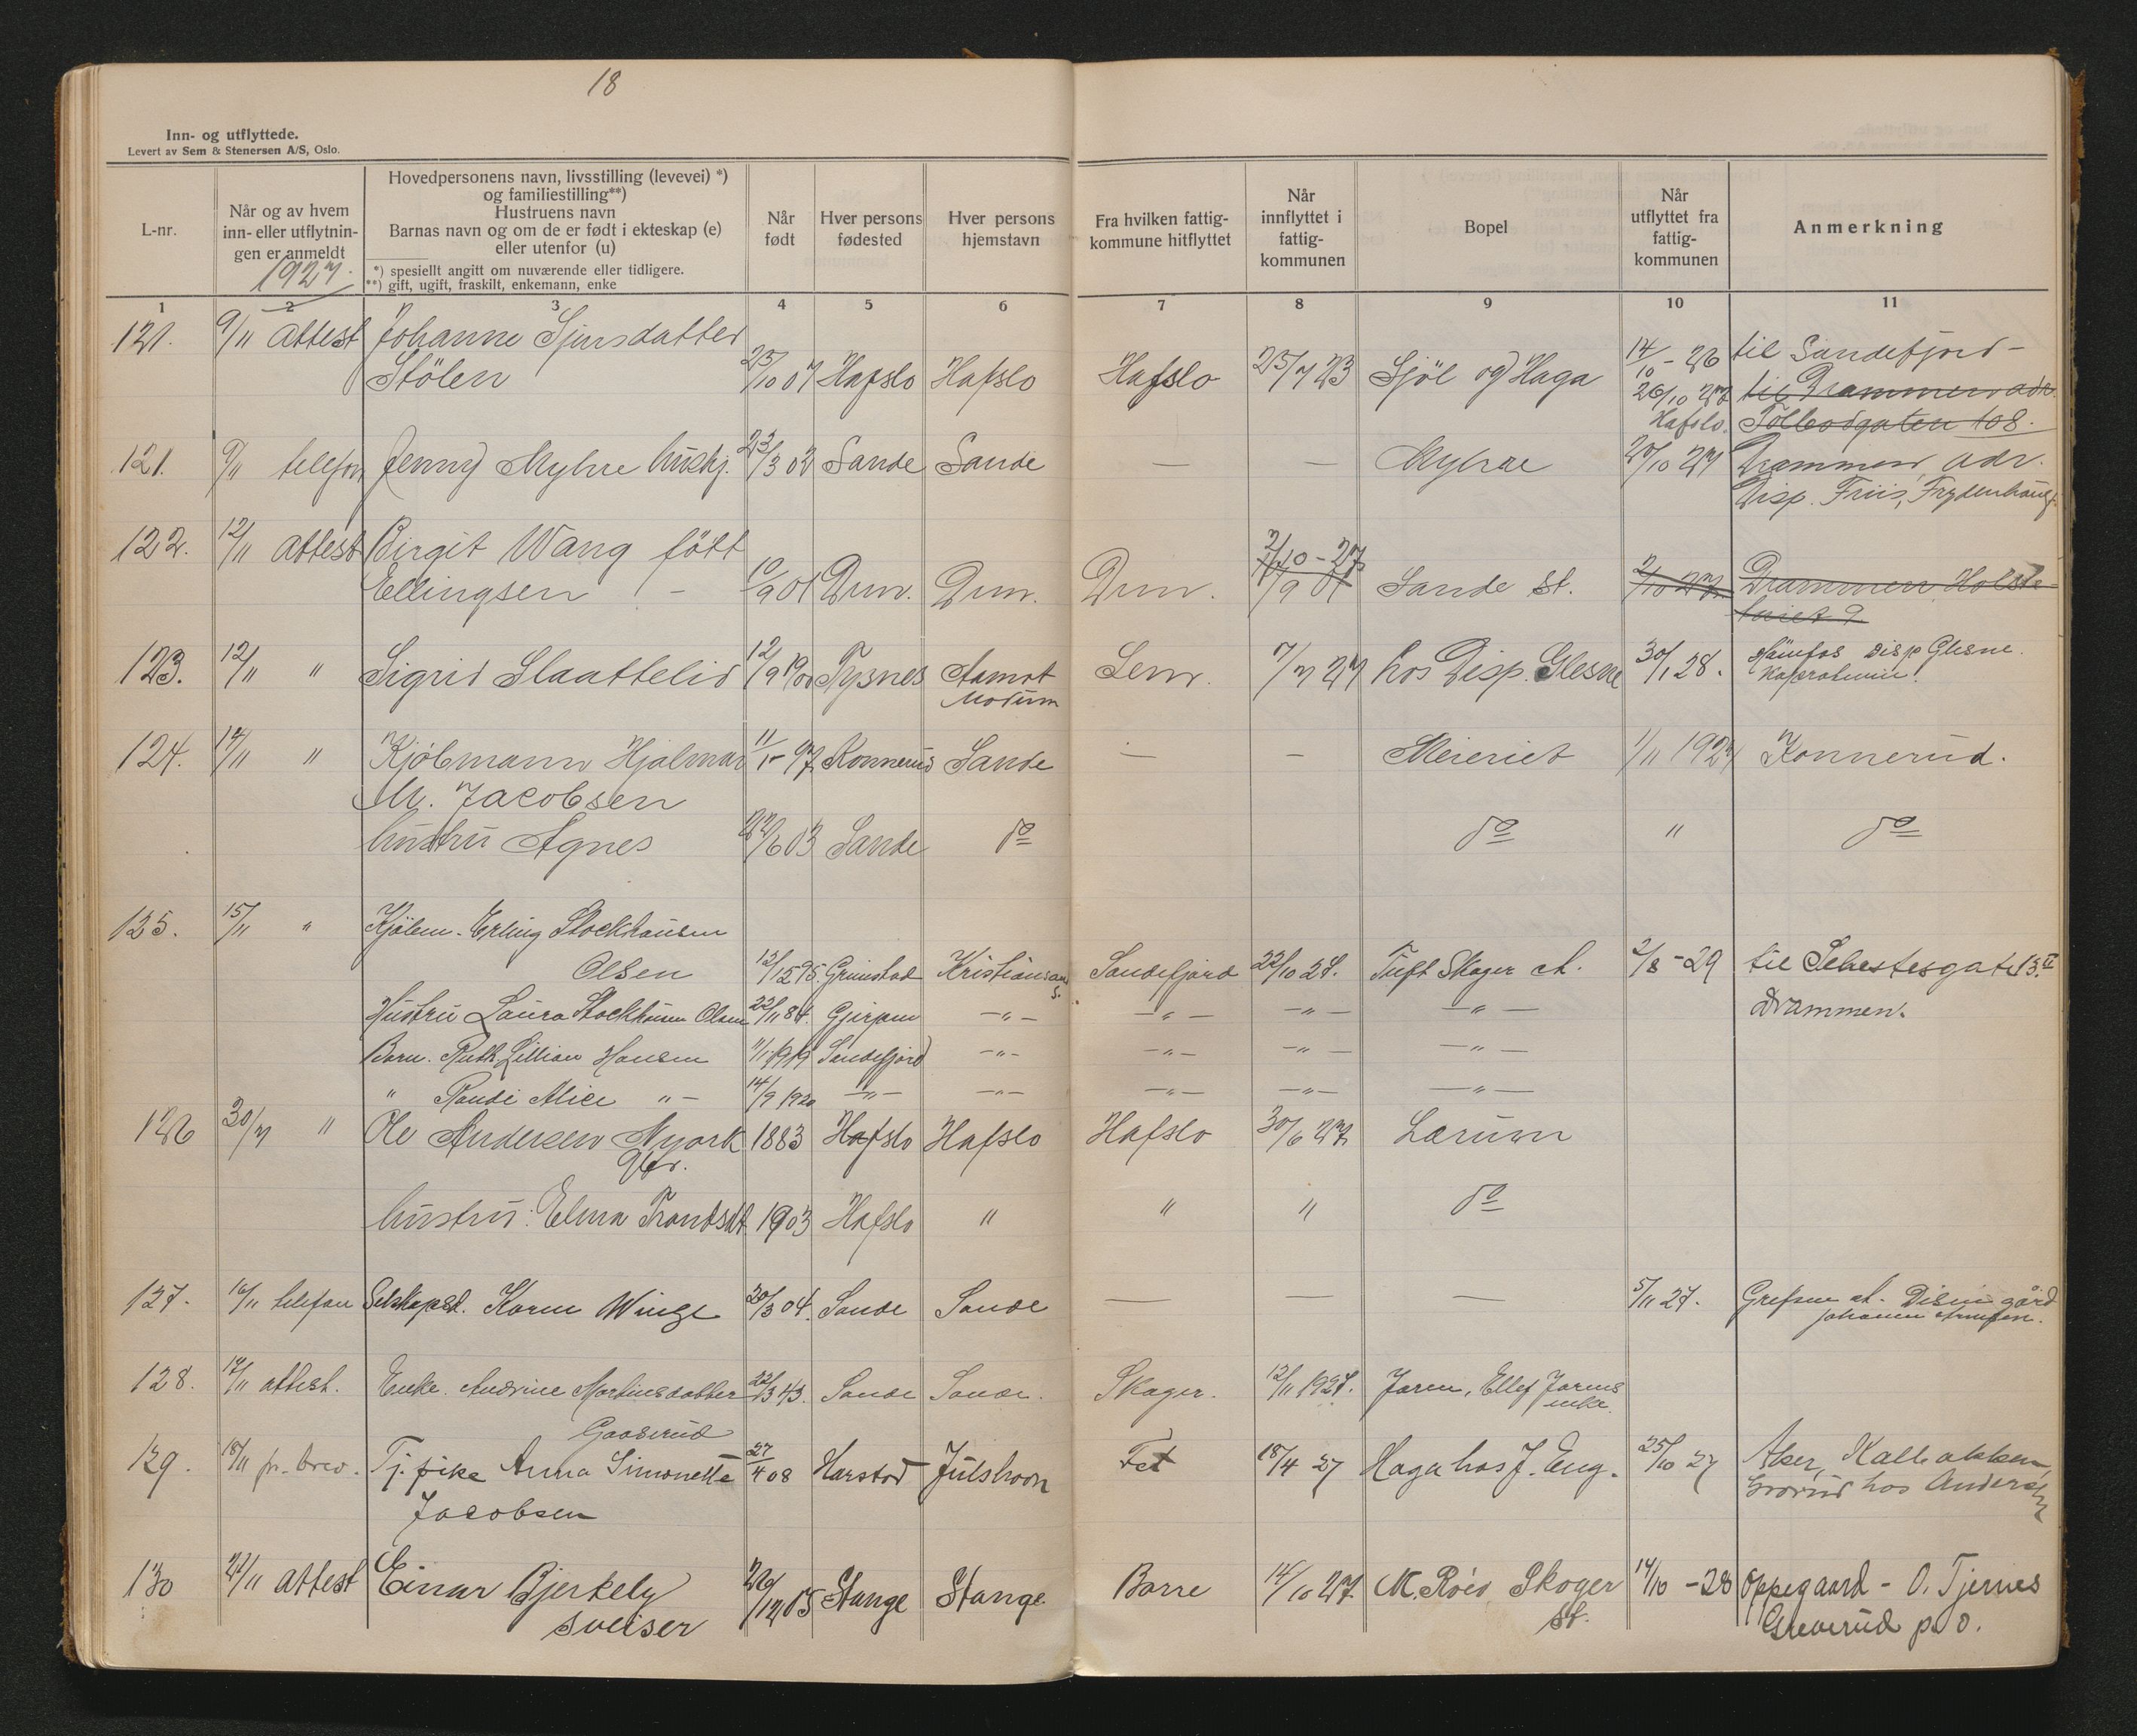 18
Inn- og utflyttede.
Levert av Sem & Stenersen A/S, Oslo.
L-nr.
Når og av hvem
inn- eller utflytnin-
gen er anmeldt
1927.
Hovedpersonens navn, livsstilling (levevei) *)
og familiestilling**)
Hustruens navn
Barnas navn og om de er født i ekteskap (e)
eller utenfor (u)
*) spesiellt angitt om nuværende eller tidligere.
**) gift, ugift, fraskilt, enkemann, enke
Når
født
Hver persons
fødested
Hver persons
hjemstavn
Fra hvilken fattig-
kommune hitflyttet
Når
innflyttet i
fattig-
kommunen
Bopel
Når
utflyttet fra
fattig-
kommunen
Anmerkning
1 2 3 4 5 6 7 8 9 10 11
121. 9/11 attest Johanne Sjursdatter 14/10 - 26 til Sandefjord -
Stölen 25/10 07 Hafslo Hafslo Hafslo 25/7 23 Sjöl og Haga 26/10 27 til Drammen adr.
Hafslo. Tollbodgaten 108.
121. 9/11 telefon Jenny Myhre hushj. 23/3 02 Sande Sande — — Myhre 20/10 27 Drammen, adr.
Disp. Friis, Frydenhaug
122. 12/11 attest Birgit Wang fött 2/10 - 27
Ellingsen - 10/9 01 Drm. Drm. Drm. 10/9 01 Sande St. 2/10 27 Drammen Holste
123. 12/11 " Sigrid Slaattelid 12/9 1900 Tysnes Aamot Sem. 7/7 27 hos Disp. Glesne 30/1 28. disp Glesne.
Modum
124. 14/11 " Kjöbmann Hjalmar 11/1 - 97 Konnerud Sande — — Meieriet 1/11 1927 Konnerud.
M. Jacobsen
hustru Agnes 27/6 03 Sande do do " do
125. 15/11 " Kjöbm. Erling Stockhausen
Olsen 12/1 95. Grimstad Kristiansand S. Sandefjord 22/10 27. Tuft Skoger st. 2/8 - 29 til Schestesgate 13 II
Hustru Laura Stockhausen Olsen 22/11 84. Gjerpen —"— —"— —"— —"— Drammen.
Barn. Ruth Lillian Hansen 11/1 1919 Sandefjord —"— —"— —"— —"—
" Randi Alice "— 14/9 1920 —"— —"— —"— —"— —"—
126 30/7 " Ole Andersen Nyork 1883 Hafslo Hafslo Hafslo 30/6 27 Lærum
hustru: Elma Trondsdt. 1903 Hafslo " " " do
127. 16/11 telefon Selskapsd. Karen Winge 20/3 04. Sande Sande — — — 5/11 27. Grefsen st. Disen gård
Johannes
128. 17/11 attest. Enke. Andrine Martinsdatter 22/3 43. Sande Sande. Skoger. 12/11 1927. Jaren, Ellef Jarens
Gaaserud enke.
129. 18/11 pr. brev. Tj. pike Anna Simonette 27/4 08 Harstad Julshavn Fet 18/4 27 Haga hos J. Eng. 25/10 27 Aker, Kalbakken,
Jacobsen Grorud hos Andersen
130 21/11 attest Einar Bjerkely 26/12 05 Stange Stange Borre 14/10 27. M. Röed, Skoger 14/10 - 28 Oppegaard - O. Tjernes
sveiser St. Greverud p. o.